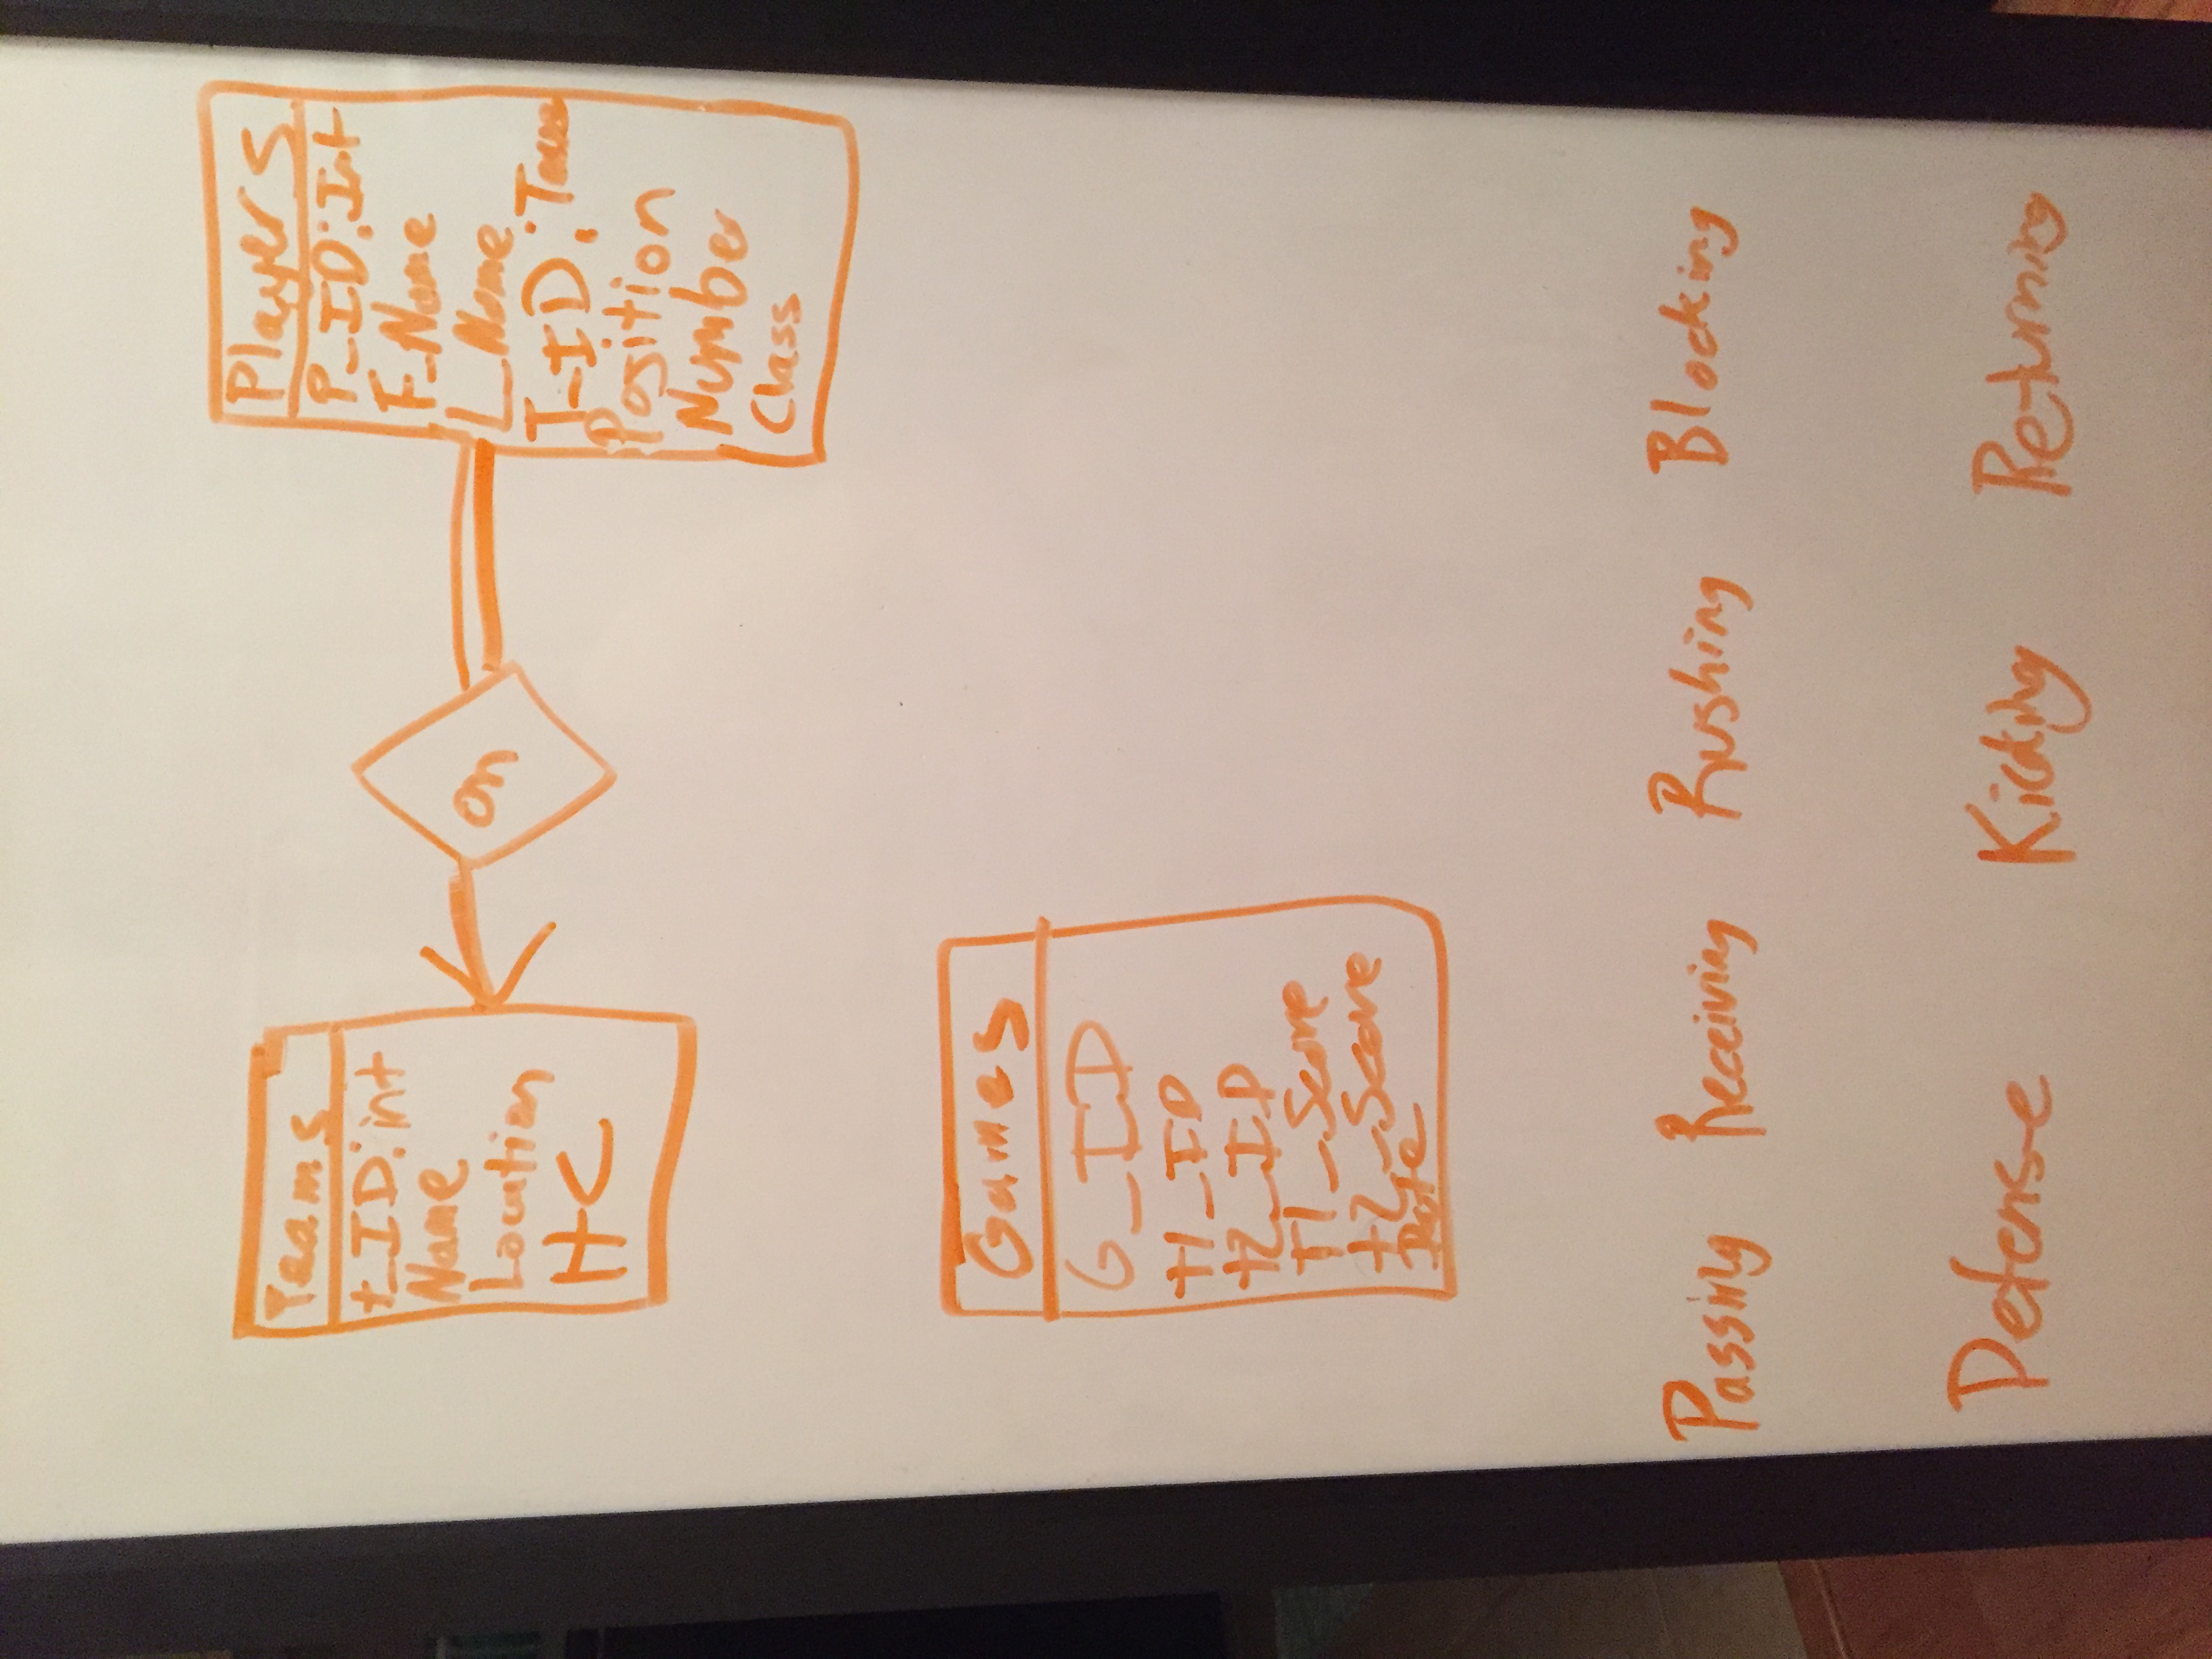 Teams
t_ID: int
Name
Location
HC
on
Players
P_ID: Int
F_Name
L_Name
T_ID:
Position
Number
Class
Games
G_ID
t1_ID
t2_ID
T1_Score
t2_Score
Date
Passing Receiving Rushing Blocking
Defense Kicking Returning